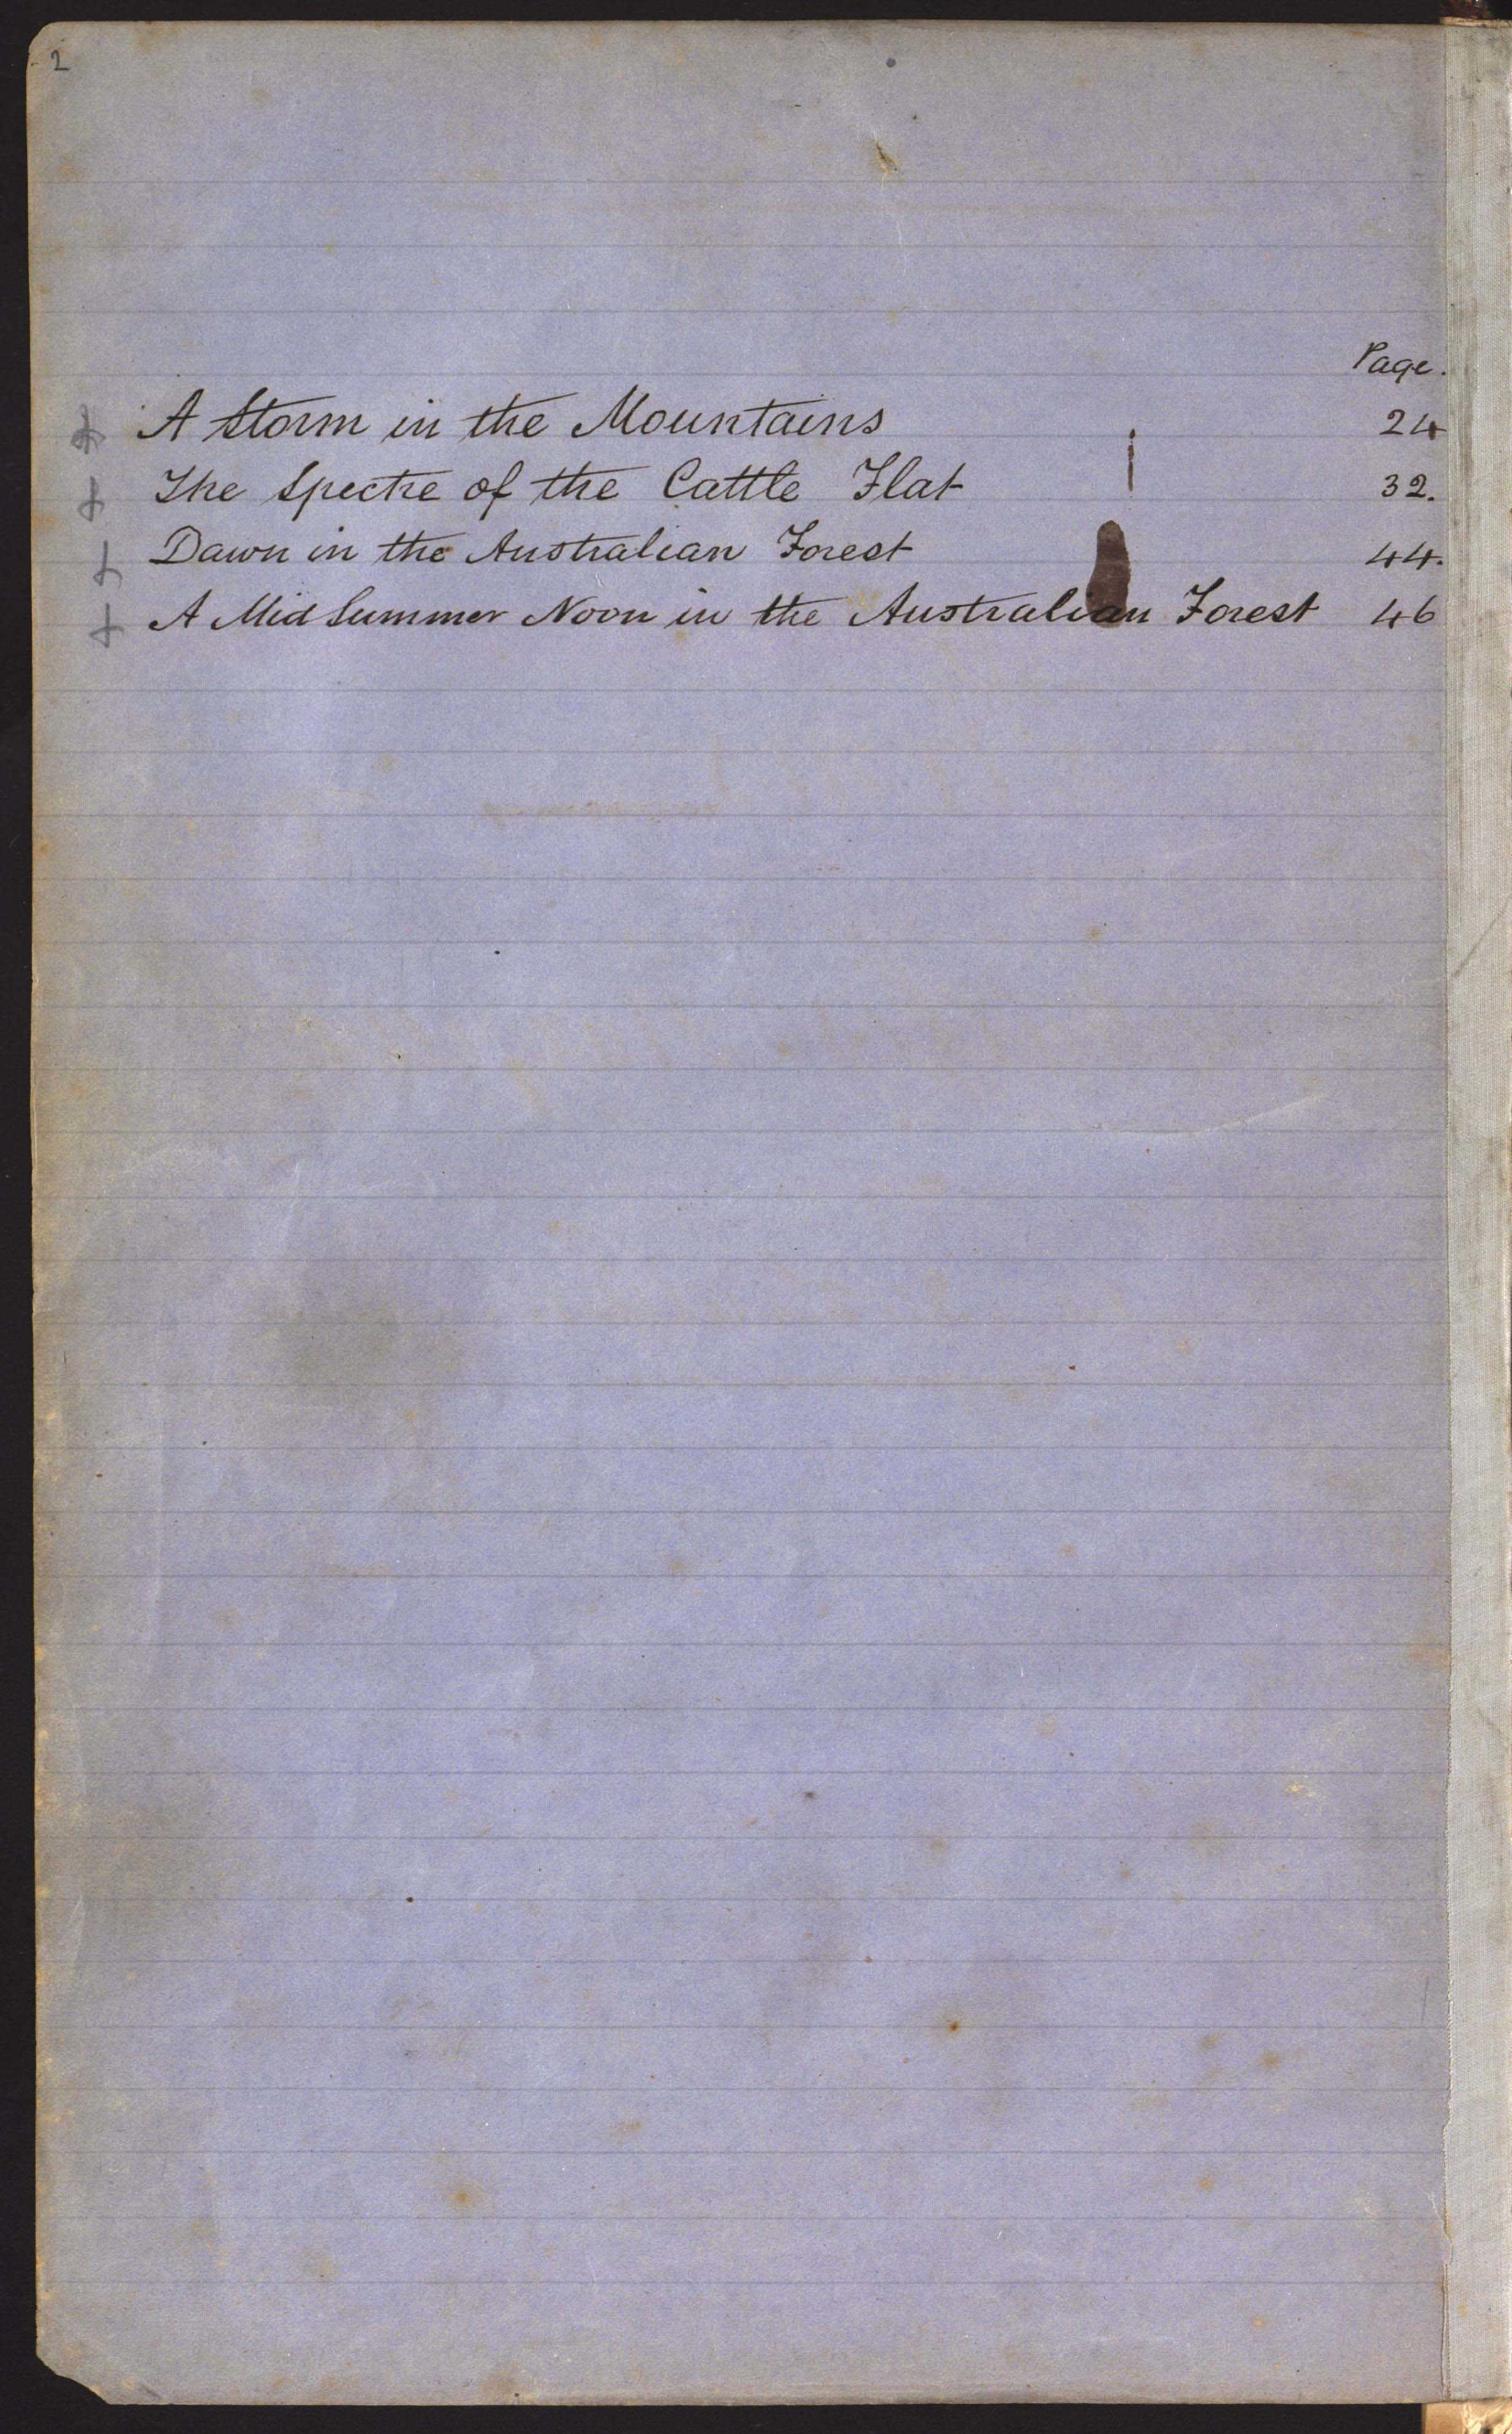 2
Page.
A Storm in the Mountains 24
The Spectre of the Cattle Flat 32.
Dawn in the Australian Forest 44.
A Mid Summer Noon in the Australian Forest 46